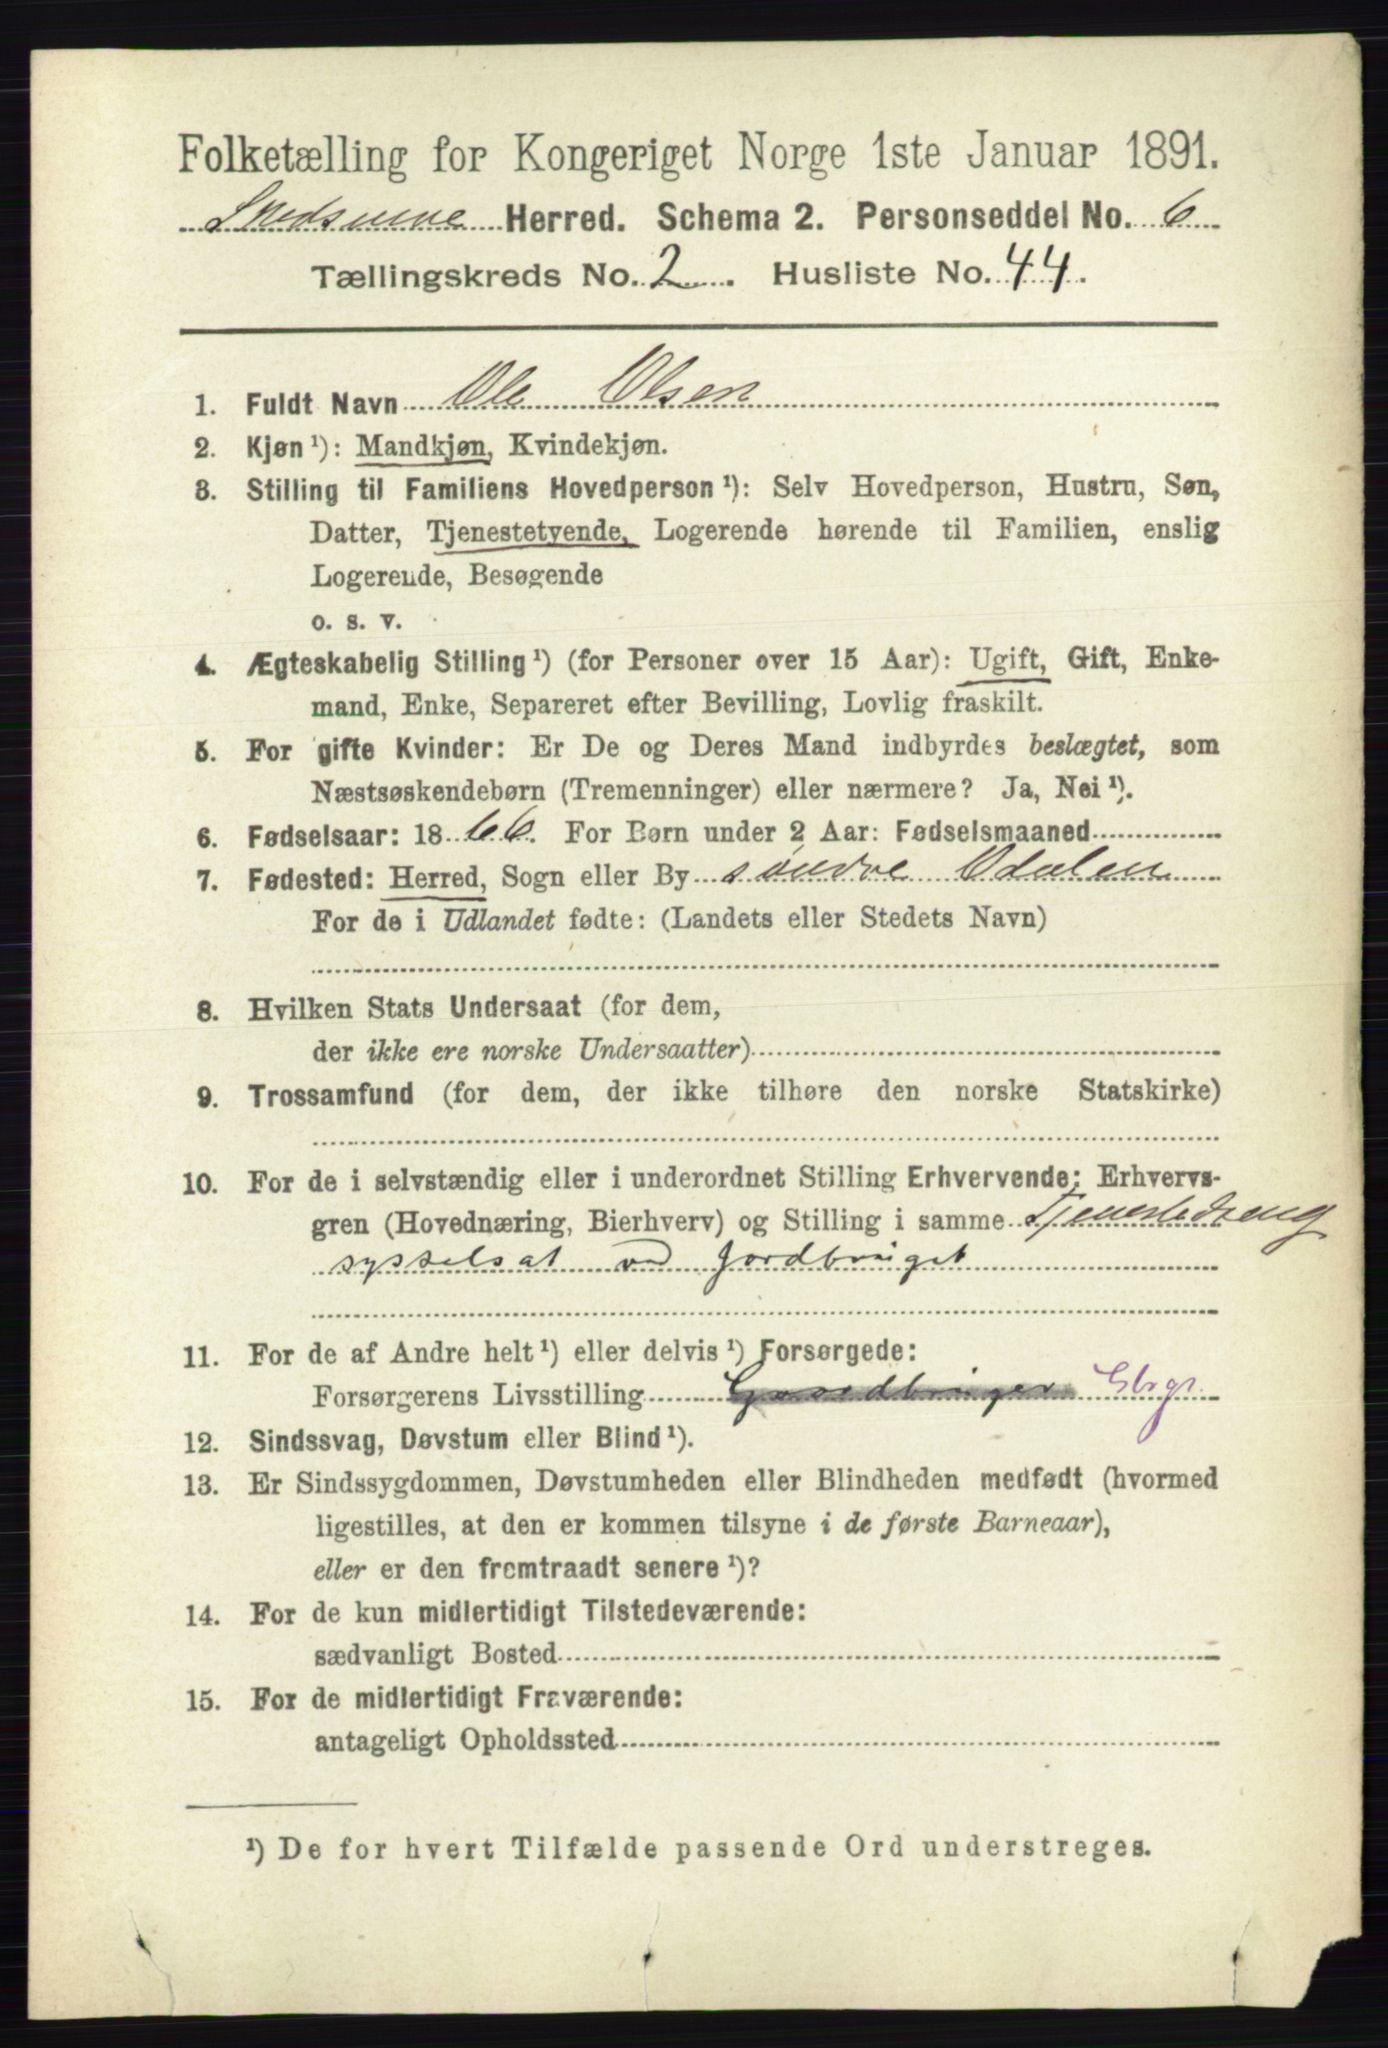 Folketælling for Kongeriget Norge 1ste Januar 1891.
Skedsmoe Herred. Schema 2. Personseddel No. 6
Tællingskreds No. 2. Husliste No. 44.
1. Fuldt Navn Ole Olsen
2. Kjøn ¹): Mandkjøn, Kvindekjøn.
3. Stilling til Familiens Hovedperson ¹): Selv Hovedperson, Hustru, Søn,
Datter, Tjenestetyende, Logerende hørende til Familien, enslig
Logerende, Besøgende
o. s. v.
4. Ægteskabelig Stilling ¹) (for Personer over 15 Aar): Ugift, Gift, Enke-
mand, Enke, Separeret efter Bevilling, Lovlig fraskilt.
5. For gifte Kvinder: Er De og Deres Mand indbyrdes beslægtet, som
Næstsøskendebørn (Tremenninger) eller nærmere? Ja, Nei ¹).
6. Fødselsaar: 1866. For Børn under 2 Aar: Fødselsmaaned
7. Fødested: Herred, Sogn eller By søndre Odalen
For de i Udlandet fødte: (Landets eller Stedets Navn)
8. Hvilken Stats Undersaat (for dem,
der ikke ere norske Undersaatter)
9. Trossamfund (for dem, der ikke tilhøre den norske Statskirke)
10. For de i selvstændig eller i underordnet Stilling Erhvervende: Erhvervs-
gren (Hovednæring, Bierhverv) og Stilling i samme Tjenestedreng
sysselsat ved Jordbruget
11. For de af Andre helt ¹) eller delvis ¹) Forsørgede:
Forsørgerens Livsstilling Gaardbruger Gbrgr.
12. Sindssvag, Døvstum eller Blind ¹).
13. Er Sindssygdommen, Døvstumheden eller Blindheden medfødt (hvormed
ligestilles, at den er kommen tilsyne i de første Barneaar),
eller er den fremtraadt senere ¹)?
14. For de kun midlertidigt Tilstedeværende:
sædvanligt Bosted
15. For de midlertidigt Fraværende:
antageligt Opholdssted
¹) De for hvert Tilfælde passende Ord understreges.